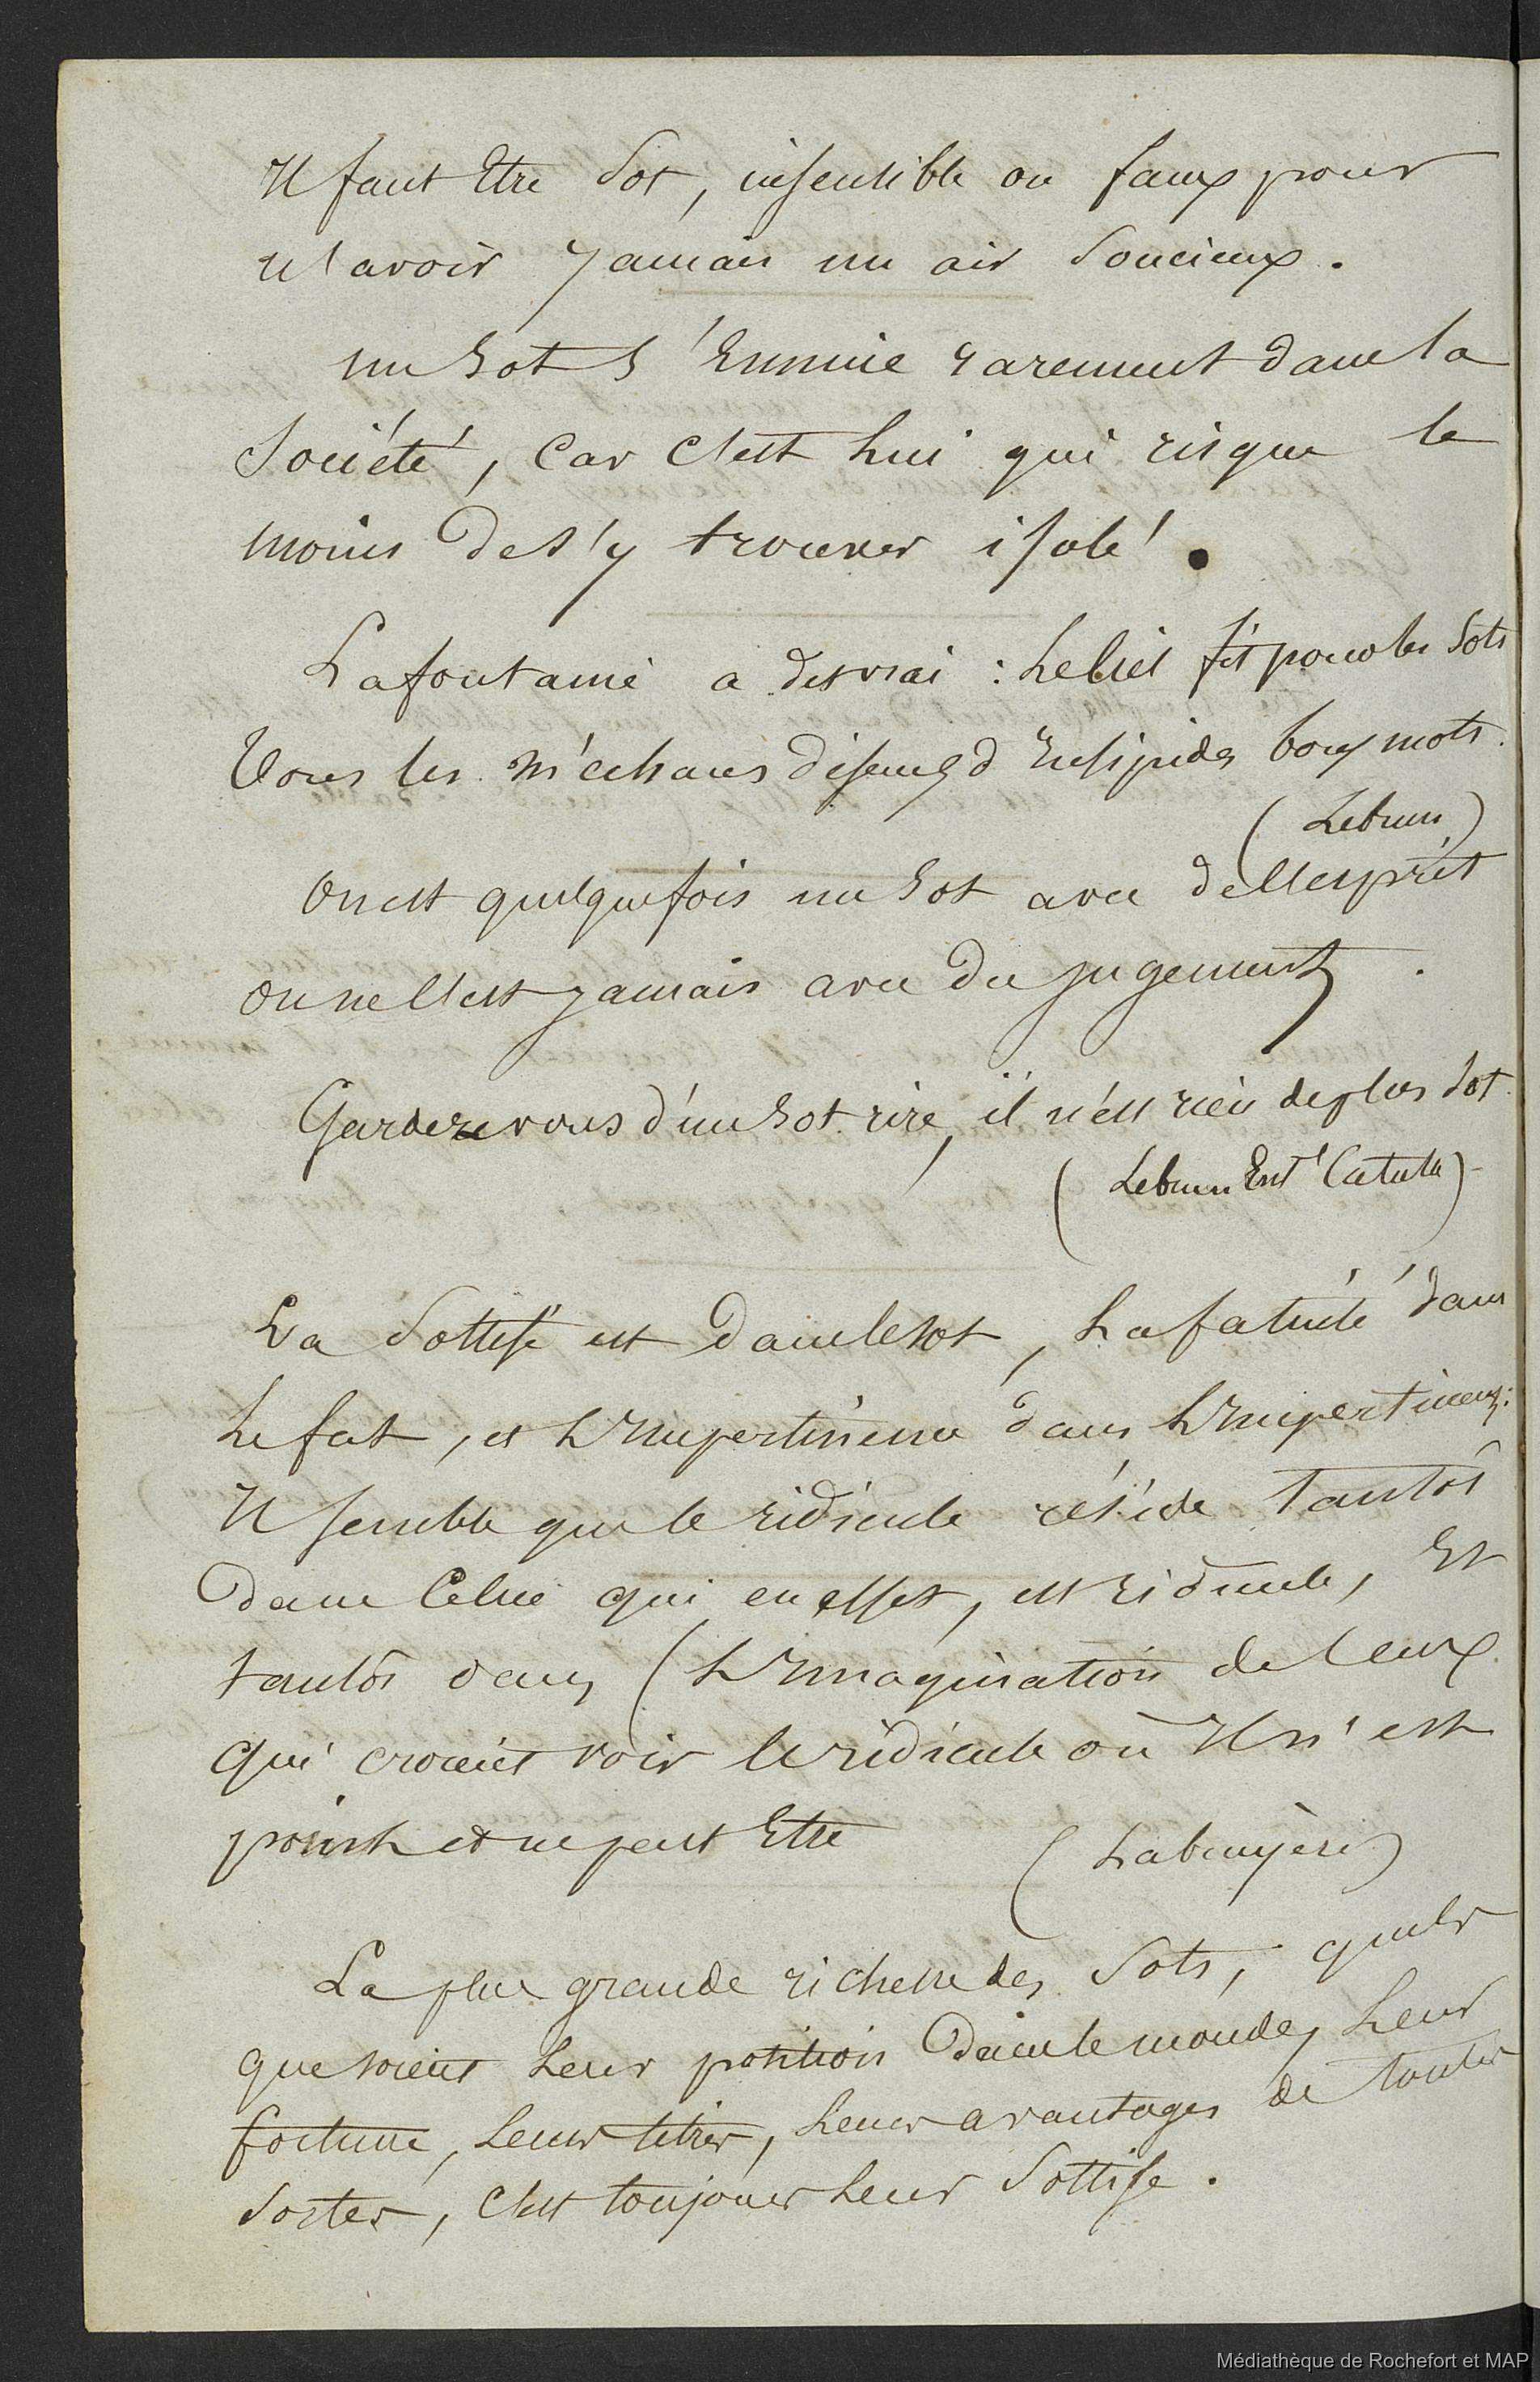 Il faut Etre Sot, insensible ou faux pour
n'avoir Jamais un air Soucieux.
un Sot s'Ennuie rarement dans la
Société, Car c'est Lui qui risque le
moins de s'y trouver isolé.
Lafontaine a dit vrai : Le Ciel fit pour les Sots
Tous les méchans diseurs d'Insipides bons mots.
(Lebrun)
On est quelquefois un Sot avec de l'esprit
on ne l'est jamais avec du jugement.
Gardez vous d'un Sot rire, il n'est rien de plus Sot.
(Lebrun Catulle)
La Sottise est dans le sot, La fatuité dans
Le fat, et L'Impertinence dans L'Impertinent:
Il semble que le ridicule réside Tantôt
dans Celui qui en effet, est ridicule, Et
tantôt dans L'Imagination de Ceux
qui croient voir le ridicule où Il n'est
point et ne peut Etre
(Labruyère)
La plus grande richesse des Sots, quels
que soient Leur position dans le monde, Leur
fortune, Leurs titres, Leurs avantages de toutes
Sortes, c'est toujours Leur Sottise.
Médiathèque de Rochefort et MAP